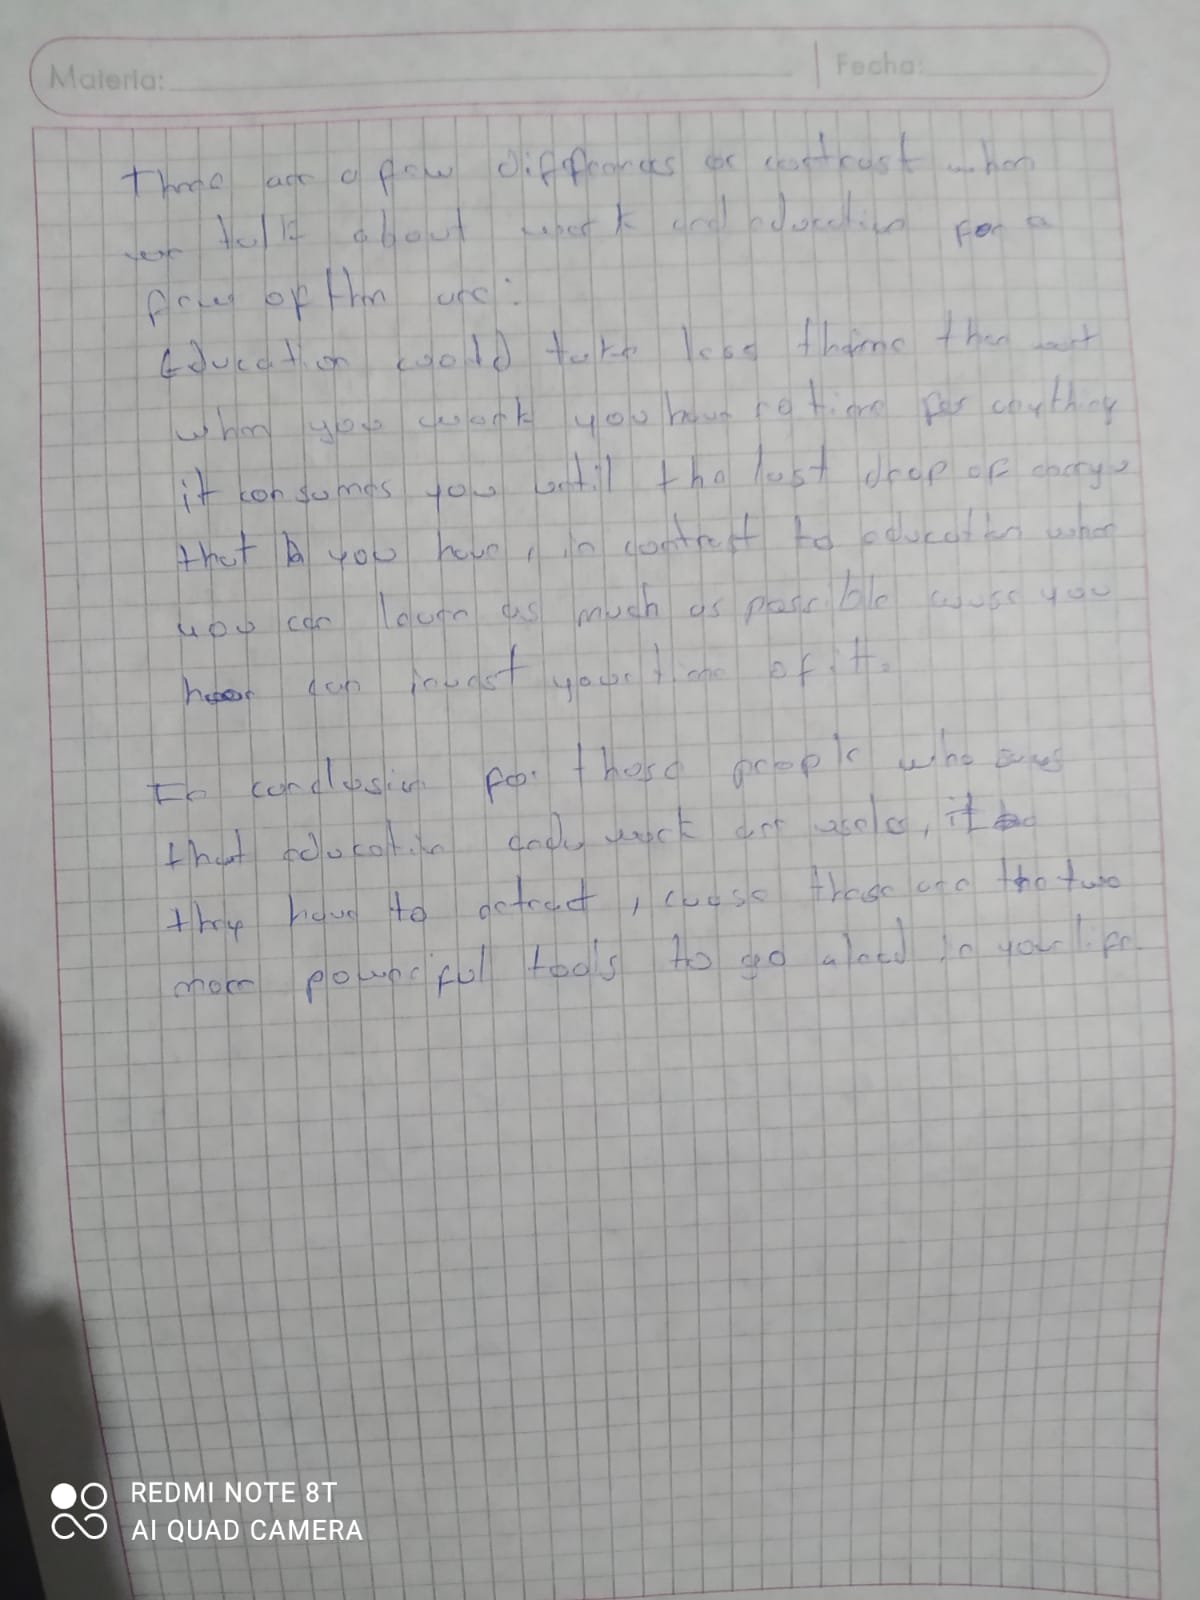 Materia: Fecha:
There are a few differences or contrast when
we talk about work and education for a
few of thm are:
Education could take less thaime than
when you work you have no time for anything
it consumes you until the last drop of energy
that you have, in contrast to education when
you can learn as much as possible cause you
can invest your time of it.
In conclusion for those people who says
that education and work are, it
they have to, cause these are the two
more powerful tools to go in your life.
REDMI NOTE 8T
AI QUAD CAMERA